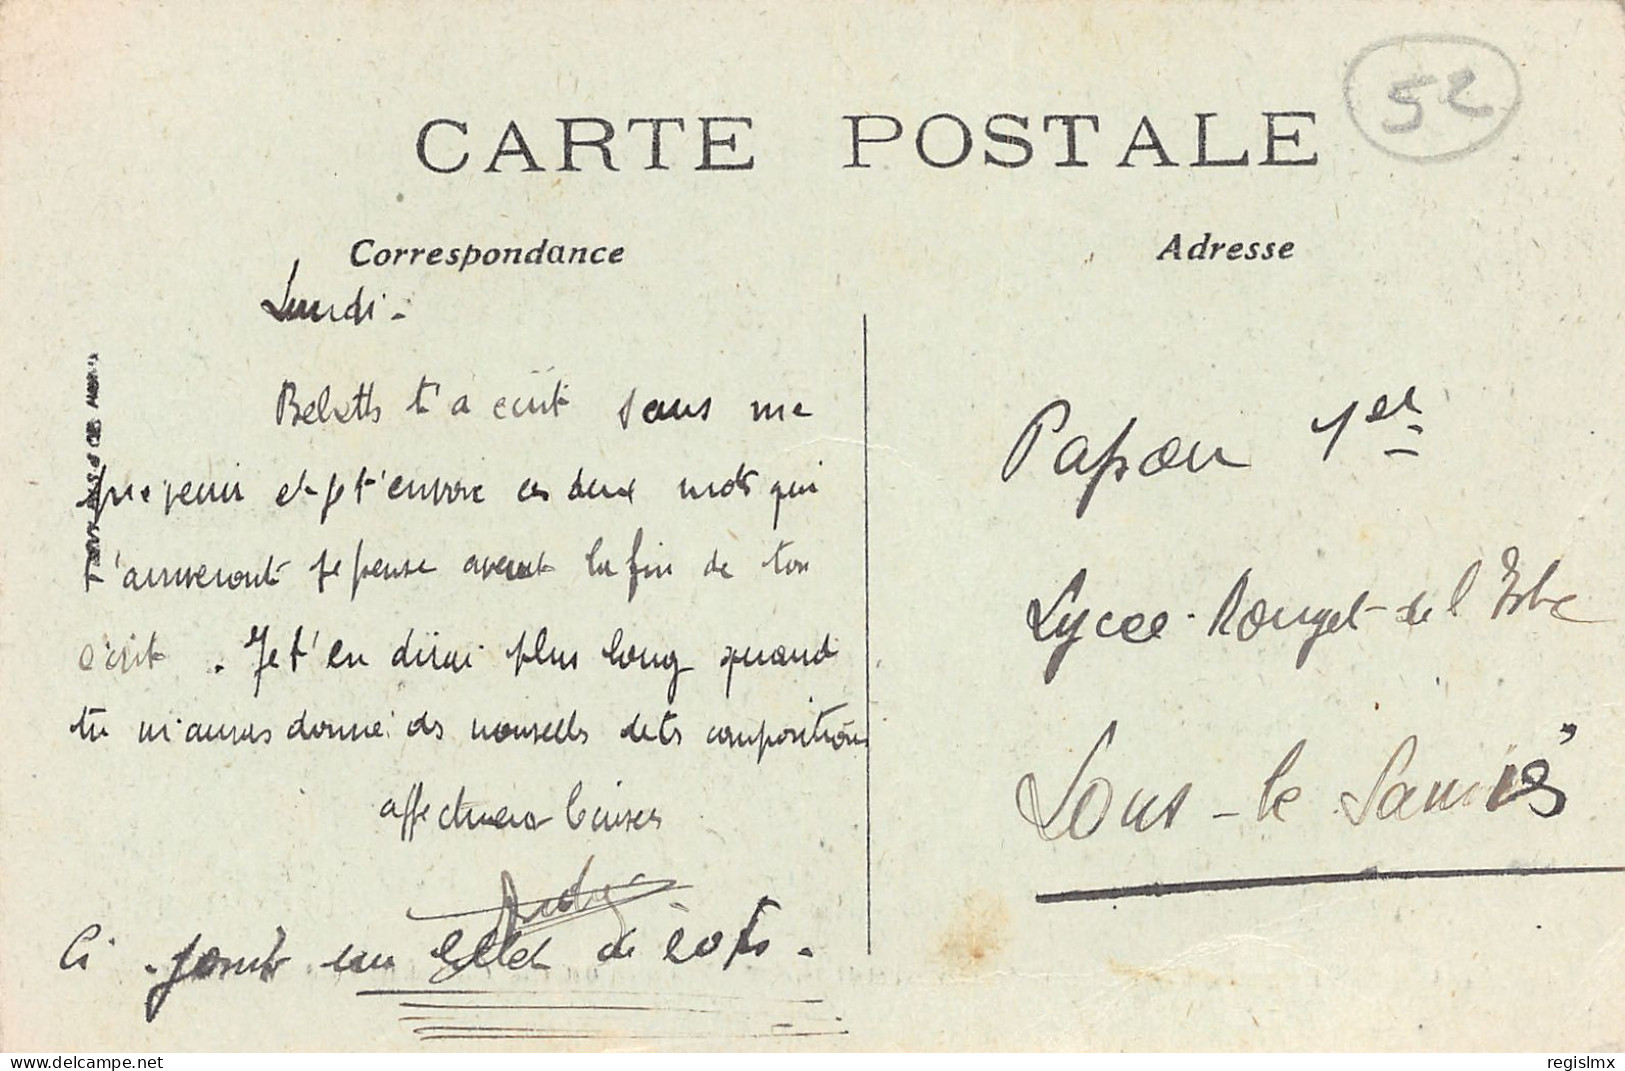 CARTE POSTALE
52
Correspondance
Adresse
Lundi.
t'a écrit sans me
prevenir et je t'envoie ces deux mots qui
t'arriveront je pense avant la fin de ton
écrit. Je t'en dirai plus long quand
tu m'auras donné des nouvelles de tes compositions
affectueux baisers
Ci-joint un billet de 20 frs.
Papon 1er
Lycée Rouget de l'Isle
Lons-le Saunier
delcampe.net
regislmx